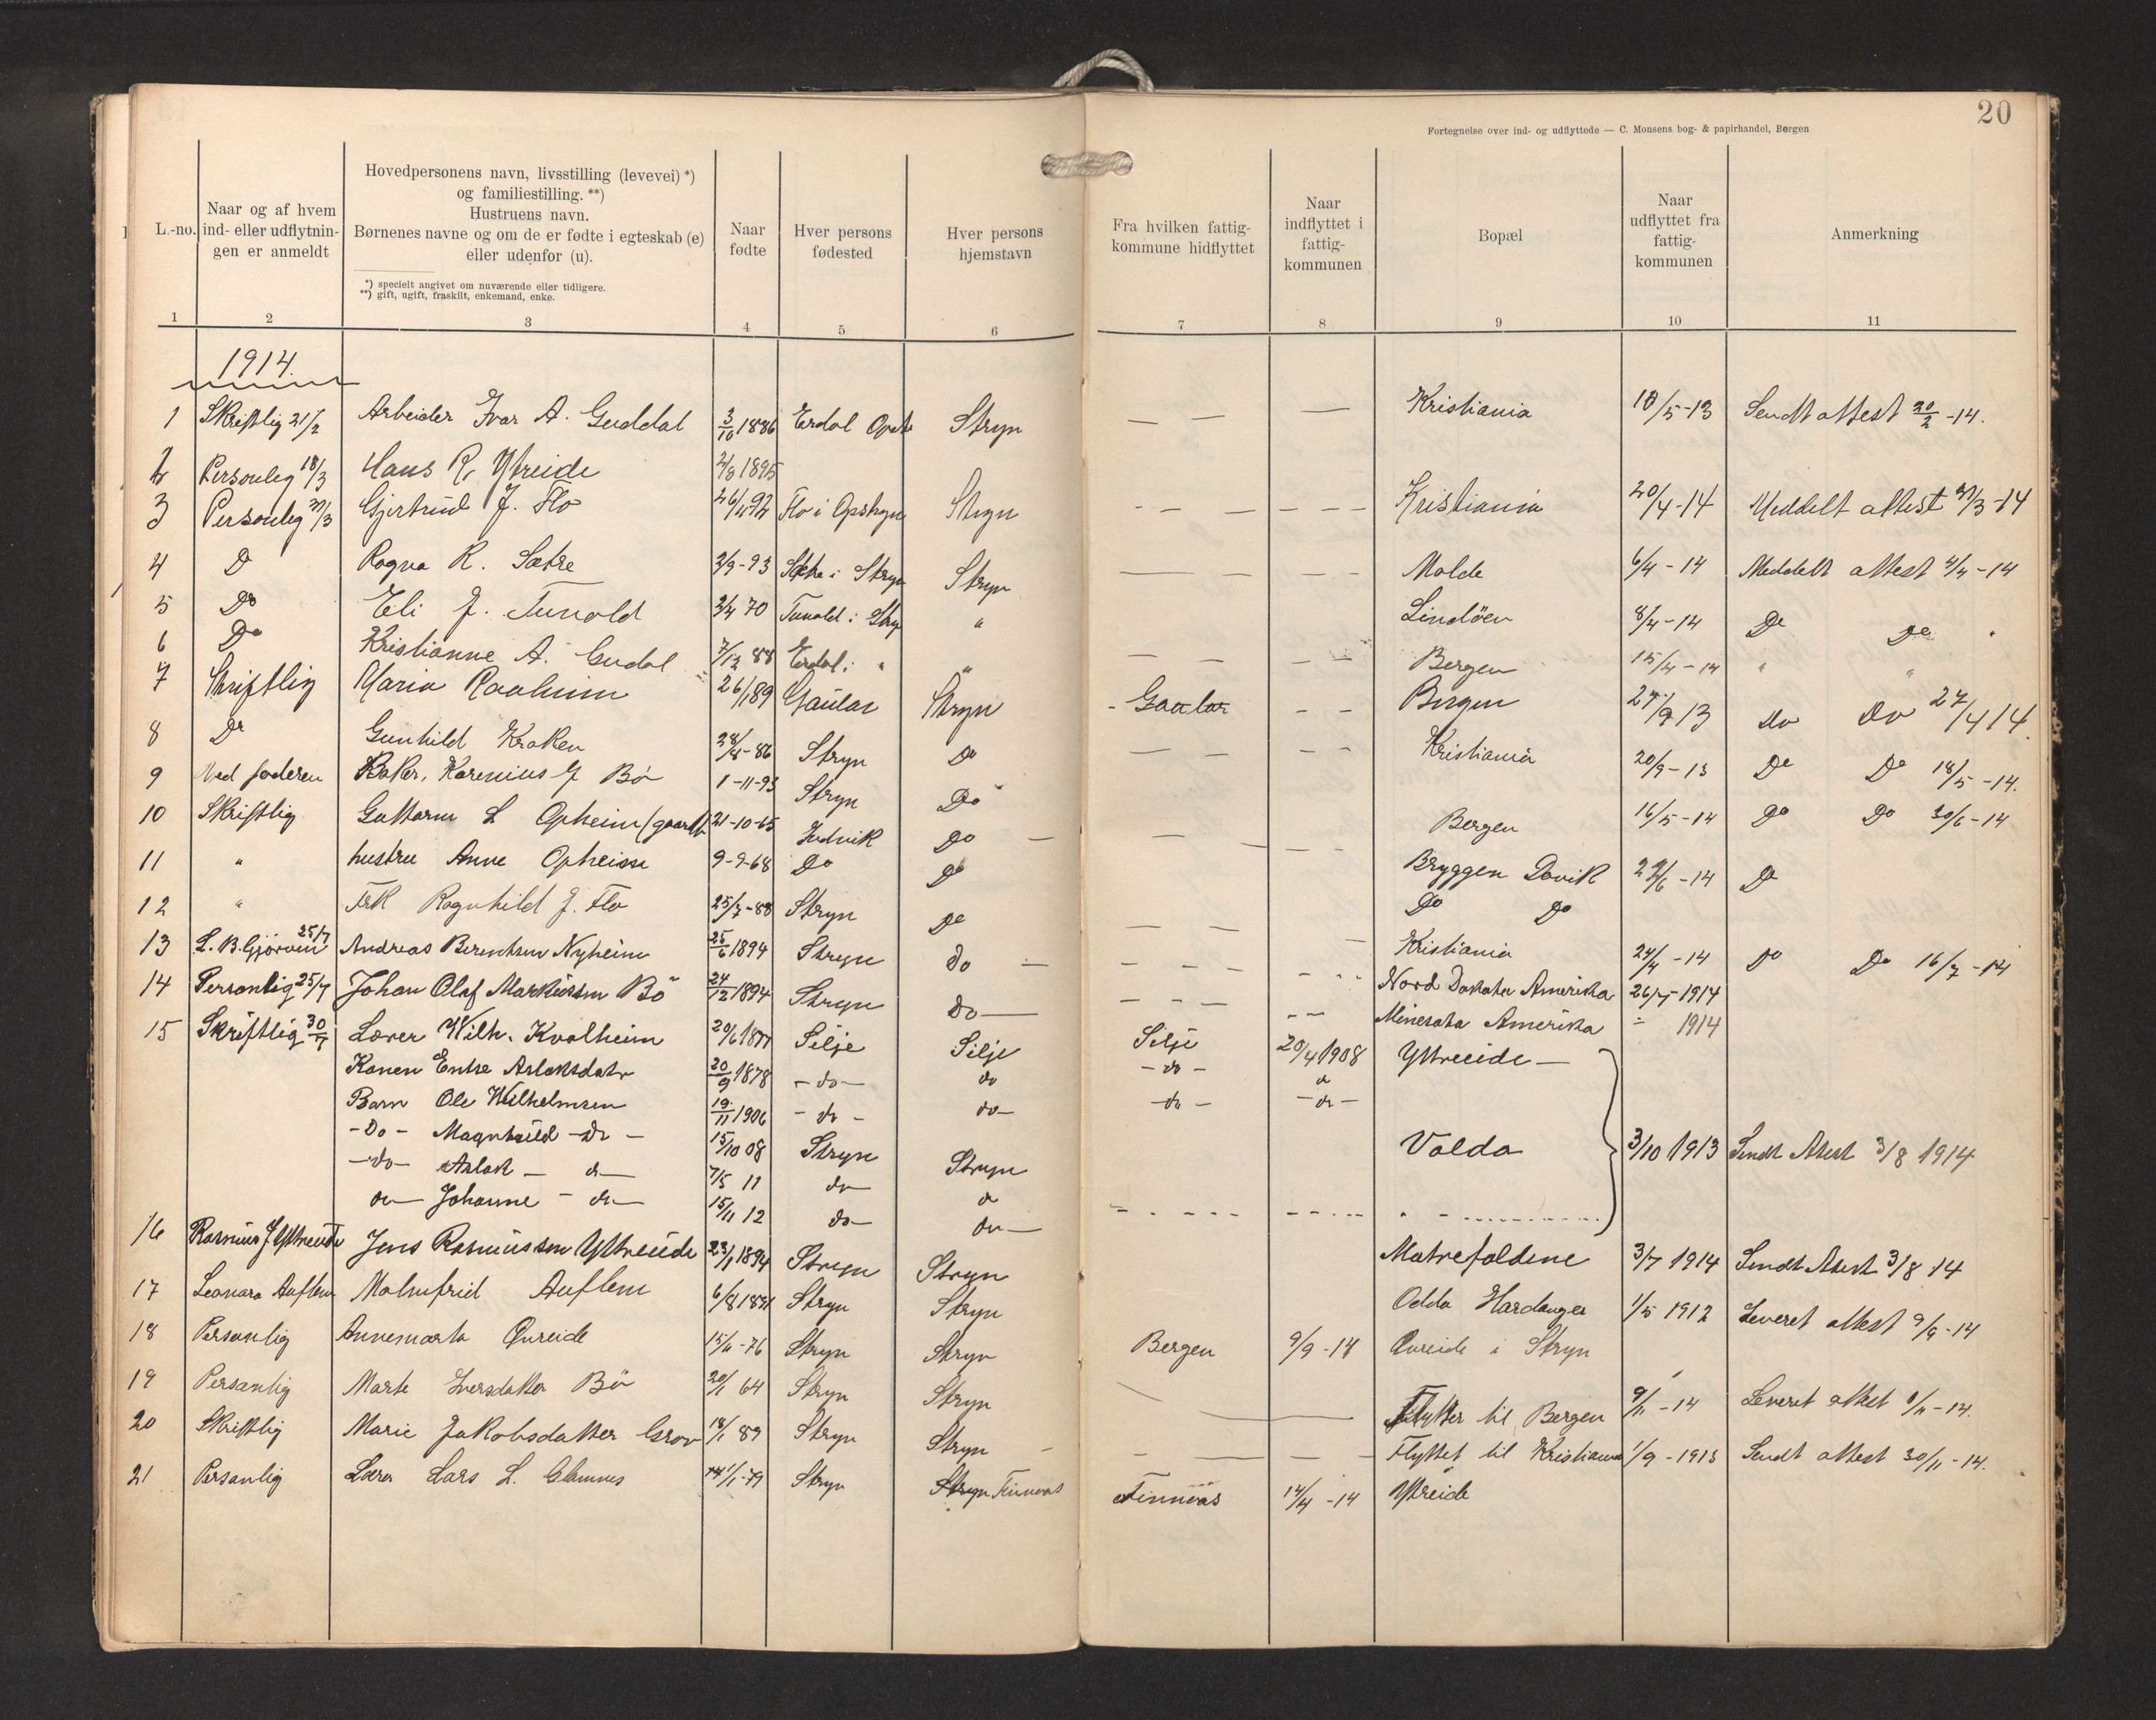 20
Fortegnelse over ind- og udflyttede — C. Monsens bog- & papirhandel, Bergen
L.-no.
Naar og af hvem
ind- eller udflytnin-
gen er anmeldt
Hovedpersonens navn, livsstilling (levevei) *)
og familiestilling. **)
Hustruens navn.
Børnenes navne og om de er fødte i egteskab (e)
eller udenfor (u).
*) specielt angivet om nuværende eller tidligere.
**) gift, ugift, fraskilt, enkemand, enke.
Naar
fødte
Hver persons
fødested
Hver persons
hjemstavn
Fra hvilken fattig-
kommune hidflyttet
Naar
indflyttet i
fattig-
kommunen
Bopæl
Naar
udflyttet fra
fattig-
kommunen
Anmerkning
1 2 3 4 5 6 7 8 9 10 11
1914.
1 Skriftlig 21/2 Arbeider Ivar A. Guddal 3/10 1886 Erdal Stryn — — Kristiania 18/5-13 Sendt attest 20/2 -14.
2 Personleg 18/3 Hans R. Ytreide 2/8 1895
3 Personleg Gjertrud J. Flo Flo i Opstryn Stryn - - — — — — Kristiania 20/4-14 Meddelt attest -14
4 D Ragna R. Sætre 2/9-93 Sætre i Stryn Stryn — — — - Molde 6/4-14 Meddelt attest 4/4-14
5 Do Eli J. Tunold 70 Tunold i Stry " Lindöen 8/4-14 Do Do "
6 Do Kristianne A. Gudal 7/12 88 Erdal i " " — — - — Bergen 15/4-14 " "
7 Skriftlig Maria Raaheim 26/1 89 Gaular Stryn - Gaular - - Bergen 27/9 13 do do 27/4 14.
8 Do Gunhild Kroken 86 Stryn Do — — - - Kristiania 20/9-13 Do Do 18/5-14.
9 Ved faderen Baker, Karenius J Bö 1-11-93 Stryn Do Bergen 16/5-14 Do Do 30/6-14
10 Skriftlig Guttorm L Opheim 21-10-65 Indvik Do — — — - - Bryggen Davik -14 D
11 " hustru Anne Opheim 9-9-68 Do Do Do Do
12 " Frk Ragnhild J. Flo 25/7-88 Stryn Do — — — Kristiania 24/4-14 Do Do 16/7-14
13 L. B. Gjörven 25/7 Andreas Berentsen Nyheim 25/6 1894 Stryn do — - - - - - - - Nord Dakota Amerika 1914
14 Personlig 25/7 Johan Olaf Markussen Bö 24/12 1894 Stryn do — — - — - - Minesota Amerika ÷ 1914
15 Skriftlig 30/7 Lærer Wilh. Kvalheim 20/6 1877 Silje Silje Silje 20/4 1908 Yttreeide —
Konen Entse Aslaksdatr 20/9 1878 - do — do - do - "
Barn Ole Wilhelmsen 19/11 1906 - do - do — - do - - do —
- Do - Magnhild - do - 15/10 08 Stryn Stryn Volda 3/10 1913 Sendt Atest 3/8 1914
— do — Aslak — do — 7/5 11 do do
do — Johanne - do — 15/11 12 do — do —
16 Rasmus J Yttreeide Jens Rasmussen Yttreeide 1894 Stryn Stryn Matrefaldene 3/7 1914 Sendt Atest 3/8 14
17 Leonard Auflem Malmfrid Auflem 6/8 1891 Stryn Stryn Odda Hardanger 1/5 1912 Leveret attest 9/9-14
18 Personlig Annemarta Qvreide 15/6-76 Stryn Stryn Bergen 9/9-14 Qvreide i Stryn
19 Personlig Marte Iversdatter Bö 20/1 64 Stryn Stryn — — Flytter til Bergen 9/11-14 Leveret attest 9/11-14.
20 Skriftlig Marie Jakobsdatter Grov 18/1 89 Stryn Stryn - - — — — Flyttet til Kristiania 1/9-1913 Sendt attest 30/11-14.
21 Personlig Lærer Lars L. 79 Stryn Stryn Finnvas Finnvas 14/4-14 Ytreide